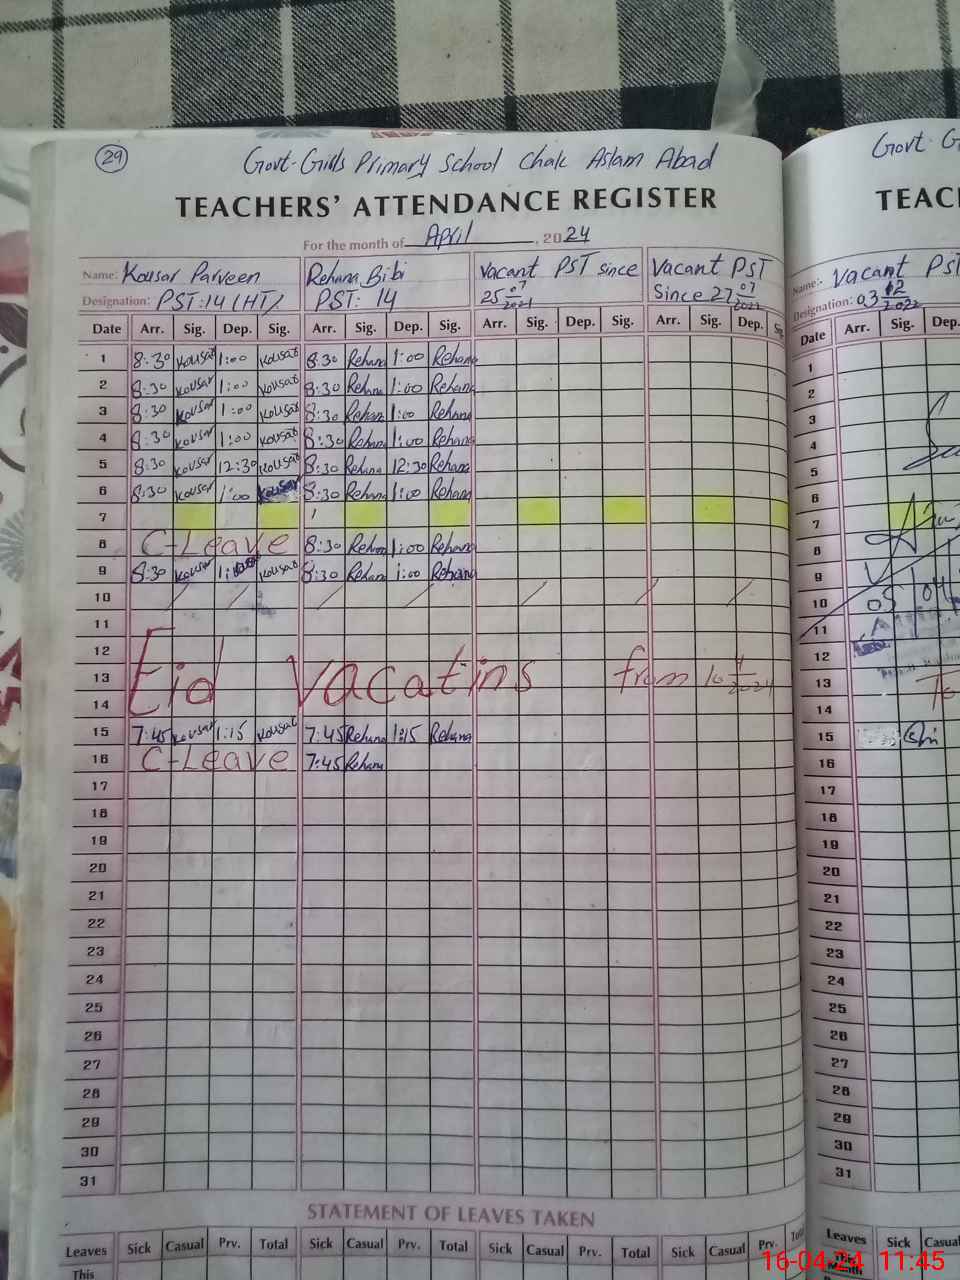 29
Govt. Girls Primary School Chak Aslam Abad
TEACHERS' ATTENDANCE REGISTER
For the month of April, 2024
Name: Kousar Parveen Rehana Bibi Vacant PST since Vacant PST
Designation: PST:14 (HT) PST: 14 25 07 2021 Since 27 07
Date Arr. Sig. Dep. Sig. Arr. Sig. Dep. Sig. Arr. Sig. Dep. Sig. Arr. Sig. Dep.
1 8:30 Kousar 1:00 Kousar 8:30 Rehana 1:00 Rehana
2 8:30 Kousar 1:00 Kousar 8:30 Rehana 1:00 Rehana
3 8:30 Kousar 1:00 Kousar 8:30 Rehana 1:00 Rehana
4 8:30 Kousar 1:00 Kousar 8:30 Rehana 1:00 Rehana
5 8:30 Kousar 12:30 Kousar 8:30 Rehana 12:30 Rehana
6 8:30 Kousar 1:00 Kousar 8:30 Rehana 1:00 Rehana
7
8 C-Leave 8:30 Rehana 1:00 Rehana
9 8:30 Kousar 1:00 Kousar 8:30 Rehana 1:00 Rehana
10
11
12
13 Eid vacatins from 10 4 2024
14
15 7:45 Kousar 1:15 Kousar 7:45 Rehana 1:15 Rehana
16 C-Leave 7:45 Rehana
17
18
19
20
21
22
23
24
25
26
27
28
29
30
31
STATEMENT OF LEAVES TAKEN
Leaves Sick Casual Prv. Total Sick Casual Prv. Total Sick Casual Prv. Total Sick Casual Prv.
This
Govt. G
TEAC
Name:- Vacant PST
Designation: 03 12 2022
Date Arr. Sig. Dep.
1
2
3
4
5
6
7
8
9
10 05 04
11
12
13 To
14
15
16
17
18
19
20
21
22
23
24
25
26
27
28
29
30
31
Leaves Sick Casual
This
Month
16-04-24 11:45